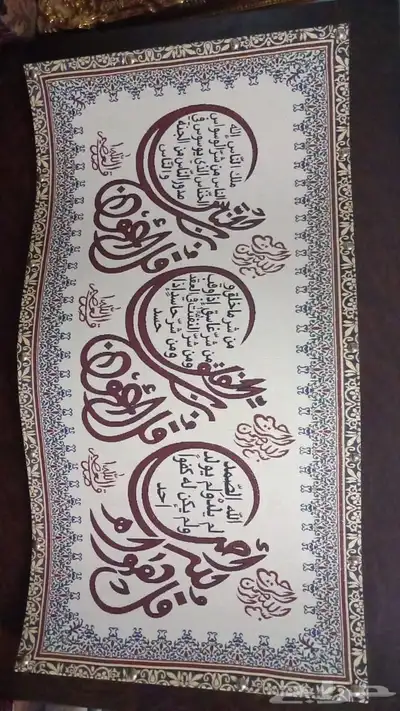 بسم الله الرحمن الرحيم
قل أعوذ برب الناس
ملك الناس إله
الناس من شر الوسواس
الخناس الذي يوسوس في
صدور الناس من الجنة
والناس
صدق الله العظيم
بسم الله الرحمن الرحيم
قل أعوذ برب الفلق
من شر ما خلق و
من شر غاسق إذا وقب
ومن شر النفثت في العقد
ومن شر حاسد إذا
حسد
صدق الله العظيم
بسم الله الرحمن الرحيم
قل هو الله أحد
الله الصمد
لم يلد ولم يولد
ولم يكن له كفوا
احد
صدق الله العظيم
حراج